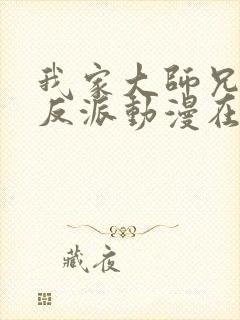 我家大師兄
反派動漫在
藏夜